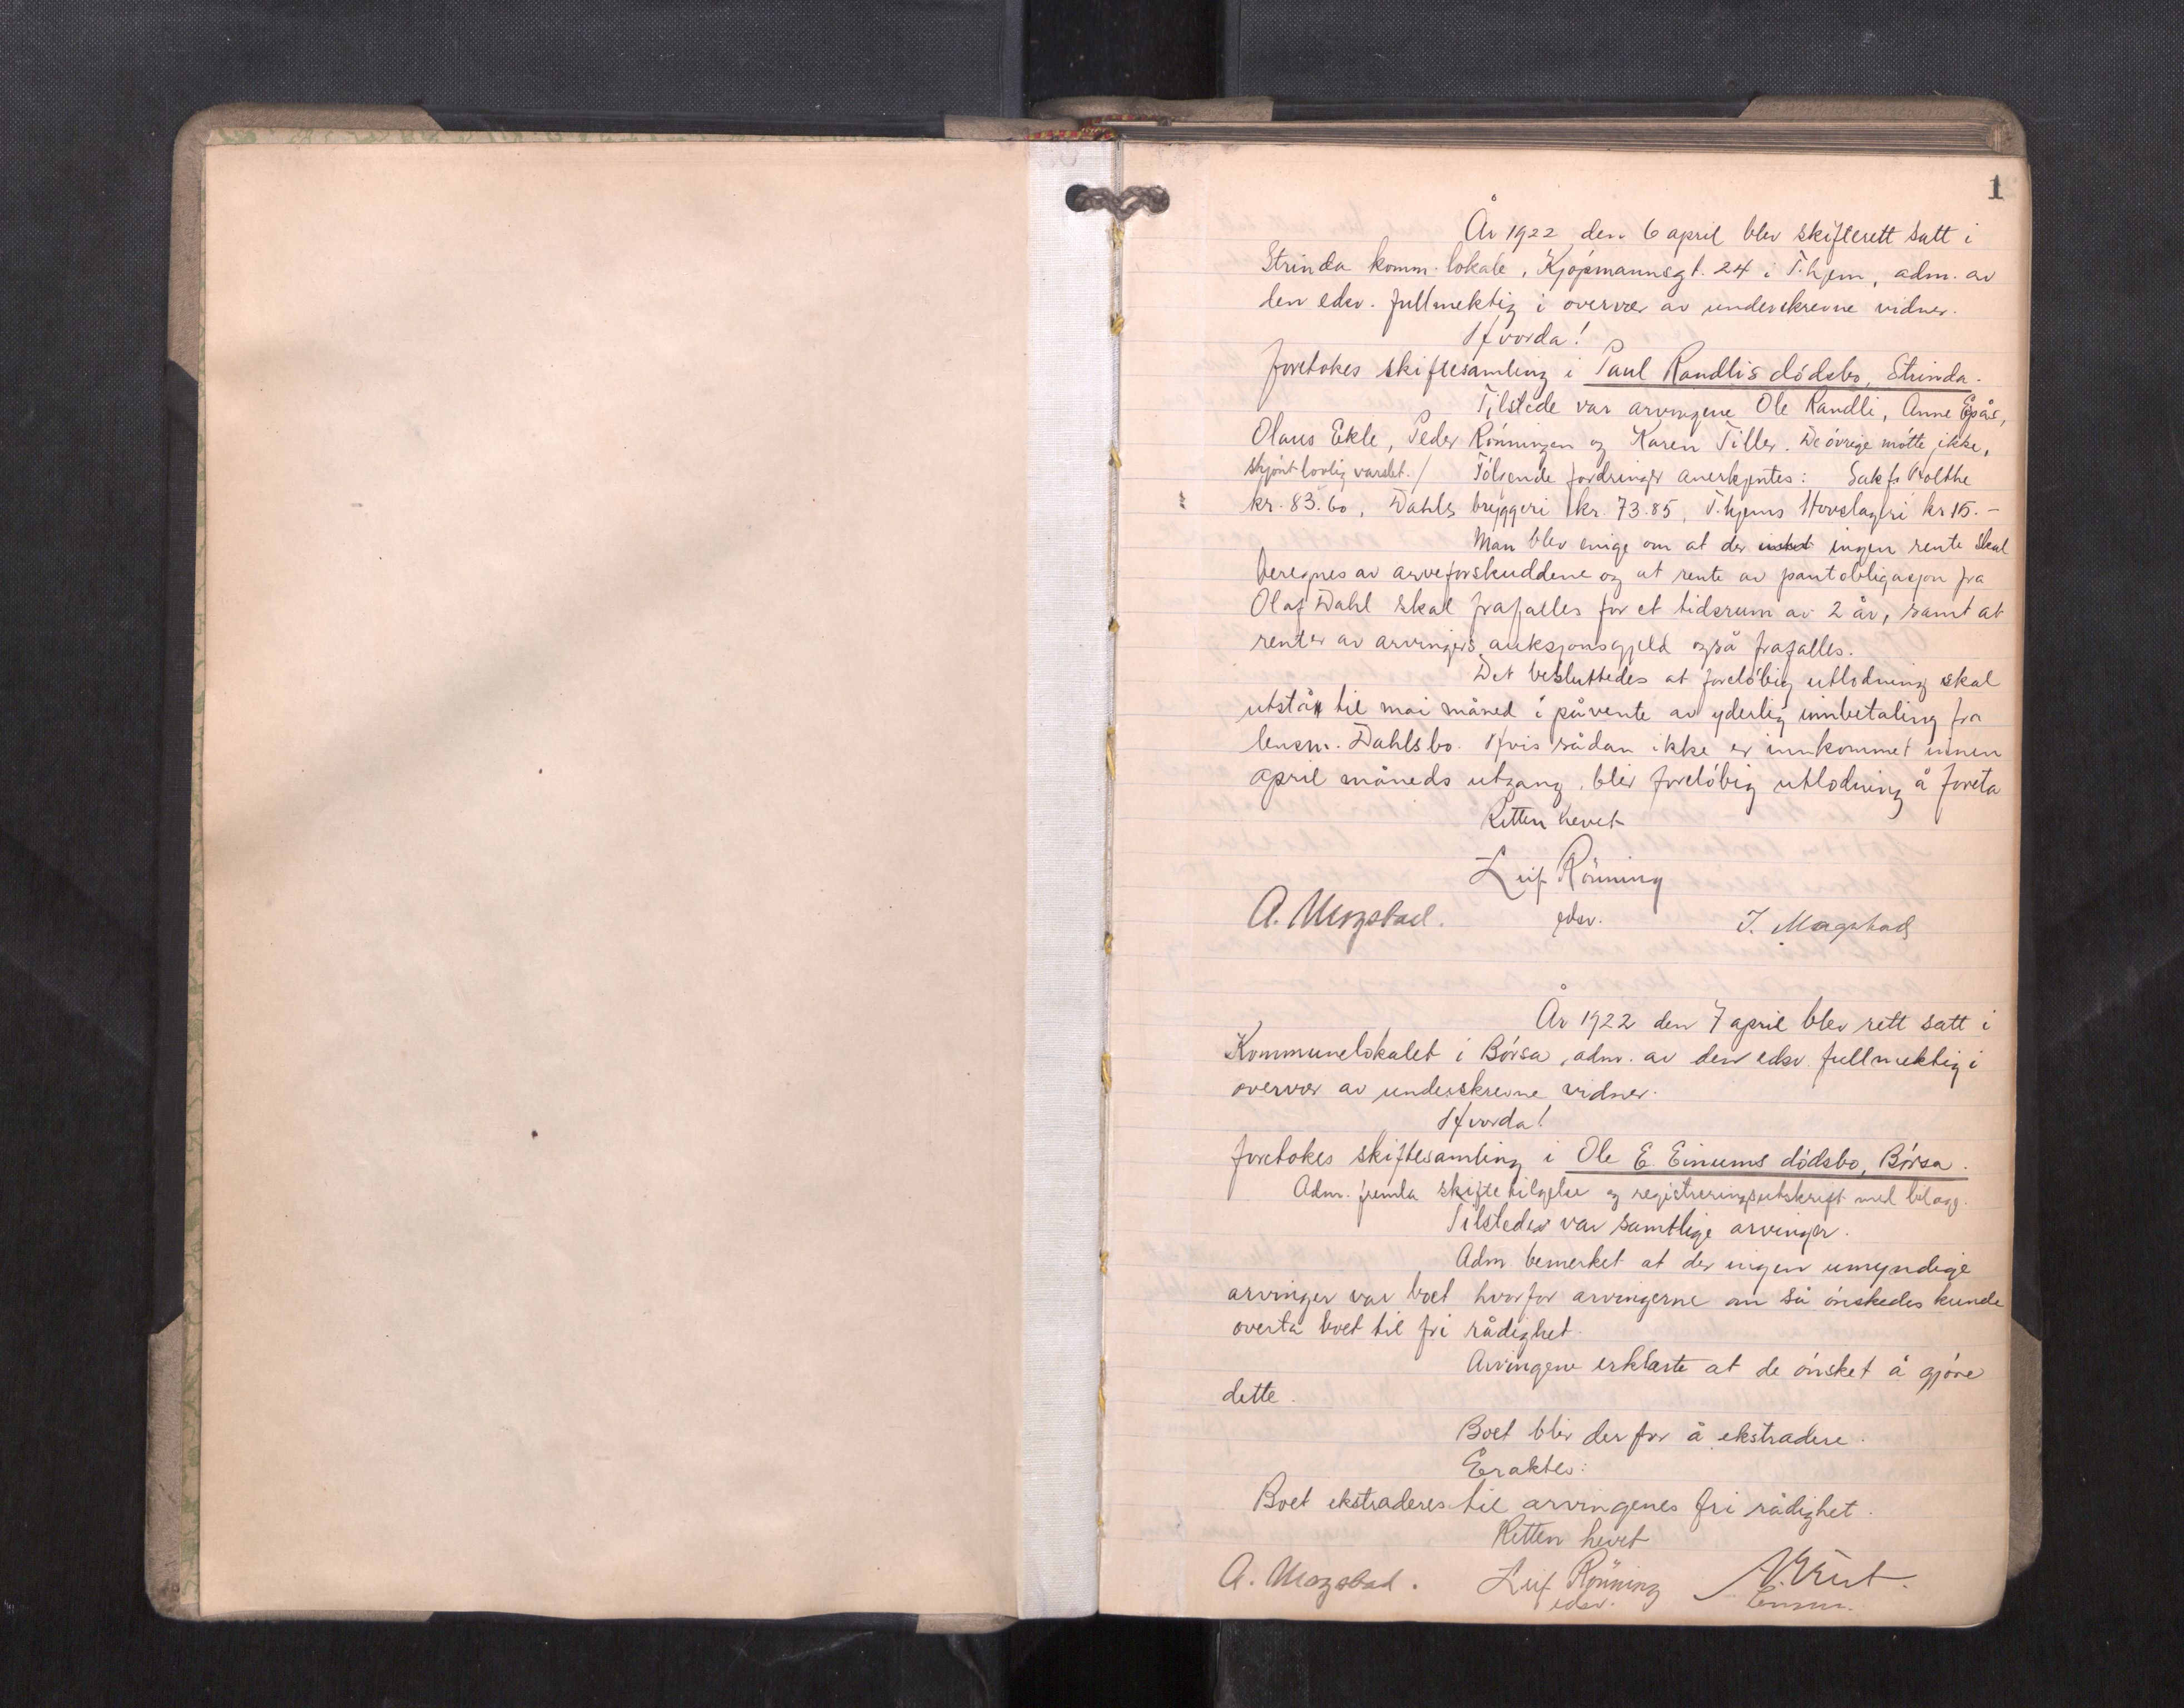 1
År 1922 den 6 april blev skifterett satt i
Strinda komm. lokale, Kjøpmannsgt. 24 i T.hjem, adm. av
den edsv. fullmektig i overvær av underskrevne vidner.
Hvorda!
foretokes skiftesamling i Paul Randlis dødsbo, Strinda.
Tilstede var arvingene Ole Randli, Anne Espås,
Olaus Ekle, Peder Rønningen og Karen Tiller. De øvrige møtte ikke,
skjønt lovlig varslet./ Følgende fordringer anerkjentes: Sakf. Rolthe
kr. 83.60, Dahls bryggeri kr. 73.85, T.hjems Hovslageri kr 15.-
Man blev enige om at der ingen rente skal
beregnes av arveforskuddene og at rente av pantobligasjon fra
Olaf Dahl skal frafalles for et tidsrum av 2 år, samt at
renter av arvingers auksjonsgjeld også frafalles.
Det besluttedes at foreløbig utlodning skal
utstå til mai måned i påvente av yderlig innbetaling fra
lensm. Dahls bo. Hvis sådan ikke er innkommet innen
april måneds utgang, blir foreløbig utlodning å foreta
Retten hevet
Leif Rönning
A. Mogstad. edsv. J. Magstad
År 1922 den 7 april blev rett satt i
Kommunelokalet i Børsa, adm. av den edsv. fullmektig i
overvær av underskrevne vidner.
Hvorda!
foretokes skiftesamling i Ole E. Einums dødsbo, Børsa.
Adm. fremla skiftetilgelse og registreringsutskrift med bilag.
Tilstede var samtlige arvinger.
Adm. bemerket at der ingen umyndige
arvinger var boet hvorfor arvingerne om så ønskedes kunde
overta boet til fri rådighet.
Arvingene erklærte at de ønsket å gjøre
dette.
Boet blir derfor å ekstradere.
Eraktes:
Boet ekstraderes til arvingenes fri rådighet.
Retten hevet
A. Mogstad. Leif Rönning
edsv. lensm.